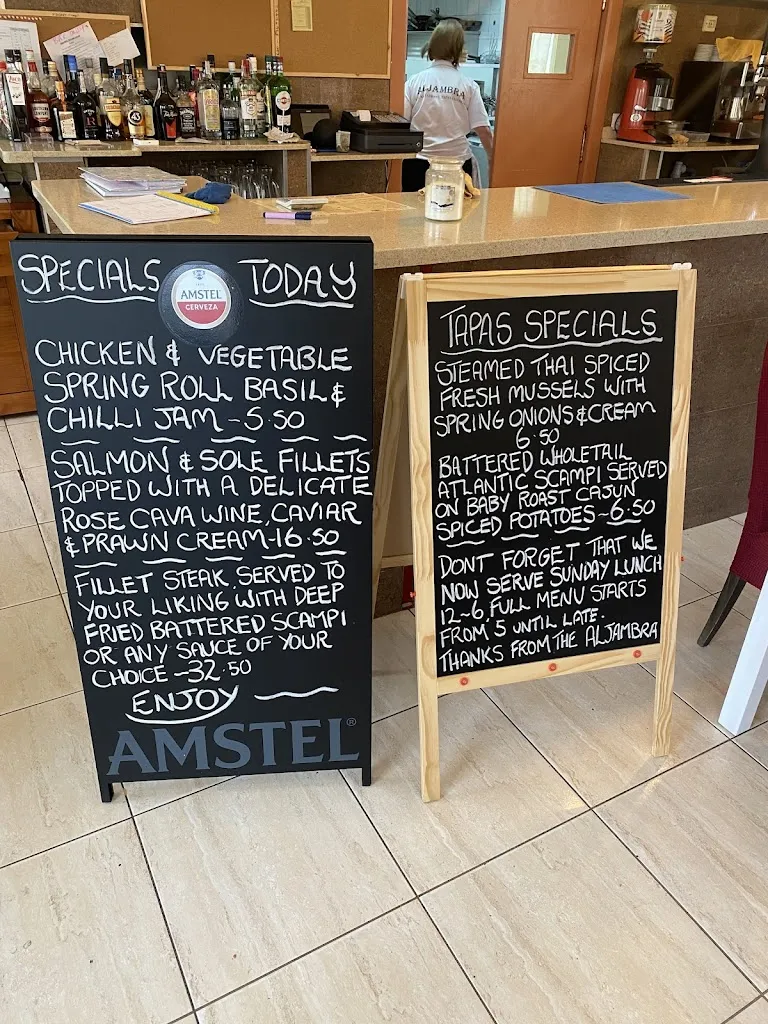 ALJAMBRA
SPECIALS TODAY
AMSTEL
CERVEZA
CHICKEN & VEGETABLE
SPRING ROLL BASIL &
CHILLI JAM - 5.50
SALMON & SOLE FILLETS
TOPPED WITH A DELICATE
ROSE CAVA WINE, CAVIAR
& PRAWN CREAM - 16.50
FILLET STEAK, SERVED TO
YOUR LIKING WITH DEEP
FRIED BATTERED SCAMPI
OR ANY SAUCE OF YOUR
CHOICE - 32.50
ENJOY
AMSTEL®
TAPAS SPECIALS
STEAMED THAI SPICED
FRESH MUSSELS WITH
SPRING ONIONS & CREAM
6.50
BATTERED WHOLETAIL
ATLANTIC SCAMPI SERVED
ON BABY ROAST CAJUN
SPICED POTATOES - 6.50
DONT FORGET THAT WE
NOW SERVE SUNDAY LUNCH
12-6, FULL MENU STARTS
FROM 5 UNTIL LATE.
THANKS FROM THE ALJAMBRA